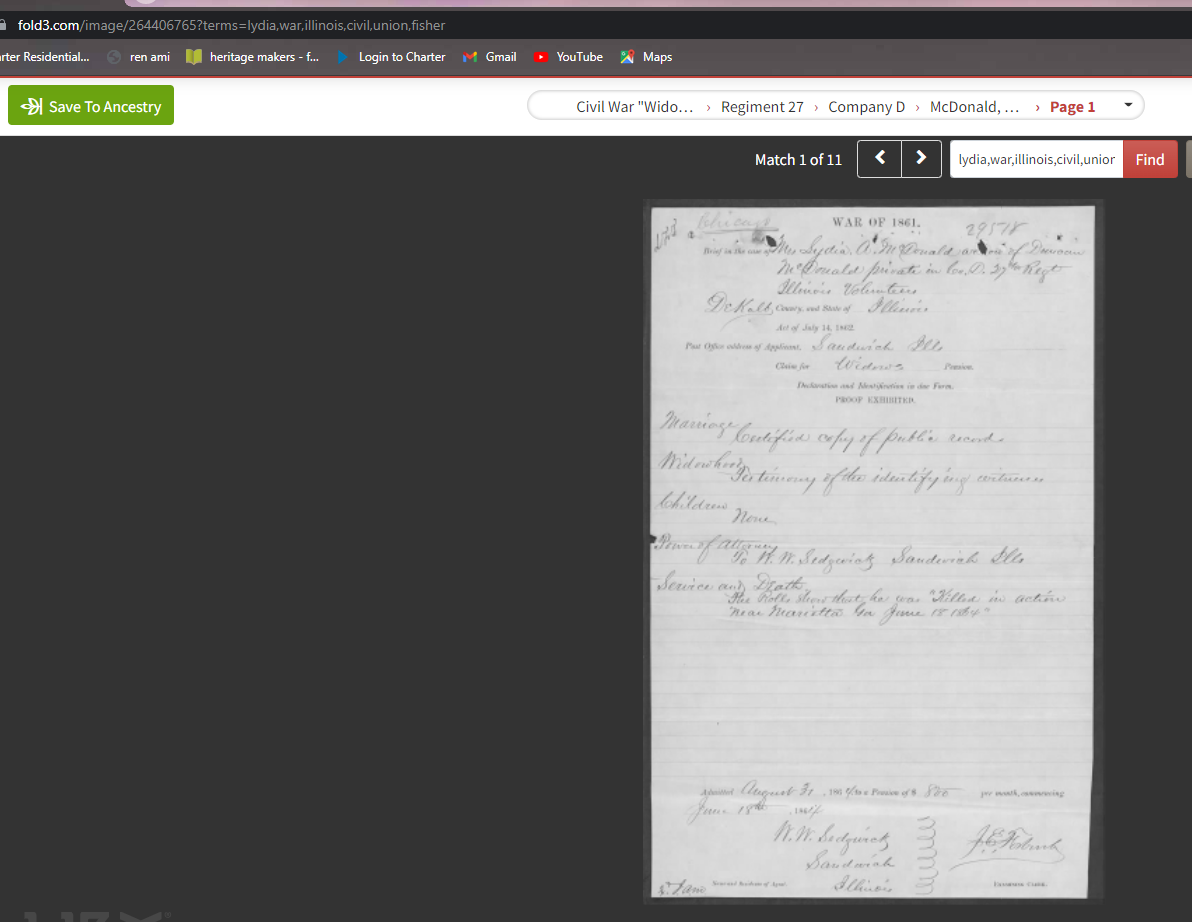 fold3.com/image/264406765?terms=lydia,war,illinois,civil,union,fisher
rter Residential... ren ami heritage makers - f... Login to Charter Gmail YouTube Maps
Save To Ancestry
Civil War "Wido... › Regiment 27 › Company D › McDonald, ... › Page 1
Match 1 of 11
lydia,war,illinois,civil,union
Find
Chicago
WAR OF 1861.
29578
Brief in the case of Mrs Lydia A. McDonald widow of Duncan
McDonald private in Co. D. 27th Regt
Illinois Volunteers
DeKalb County, and State of Illinois
Act of July 14, 1862.
Post Office address of Applicant, Sandwich Ills
Claim for Widows Pension.
Declaration and Identification in due Form.
PROOF EXHIBITED.
Marriage
Certified copy of public records
Widowhood
Testimony of the identifying witnesses
Children
None
Power of Attorney
To W. W. Sedgwick Sandwich Ills
Service and Death
The Rolls show that he was "Killed in action
near Marietta Ga June 18 1864"
Admitted August 31, 186 to a Pension of $ 8 00 per month, commencing
June 18th, 1864
W. W. Sedgwick
Sandwich
Illinois
Name and Residence of Agent.
Examining Clerk.